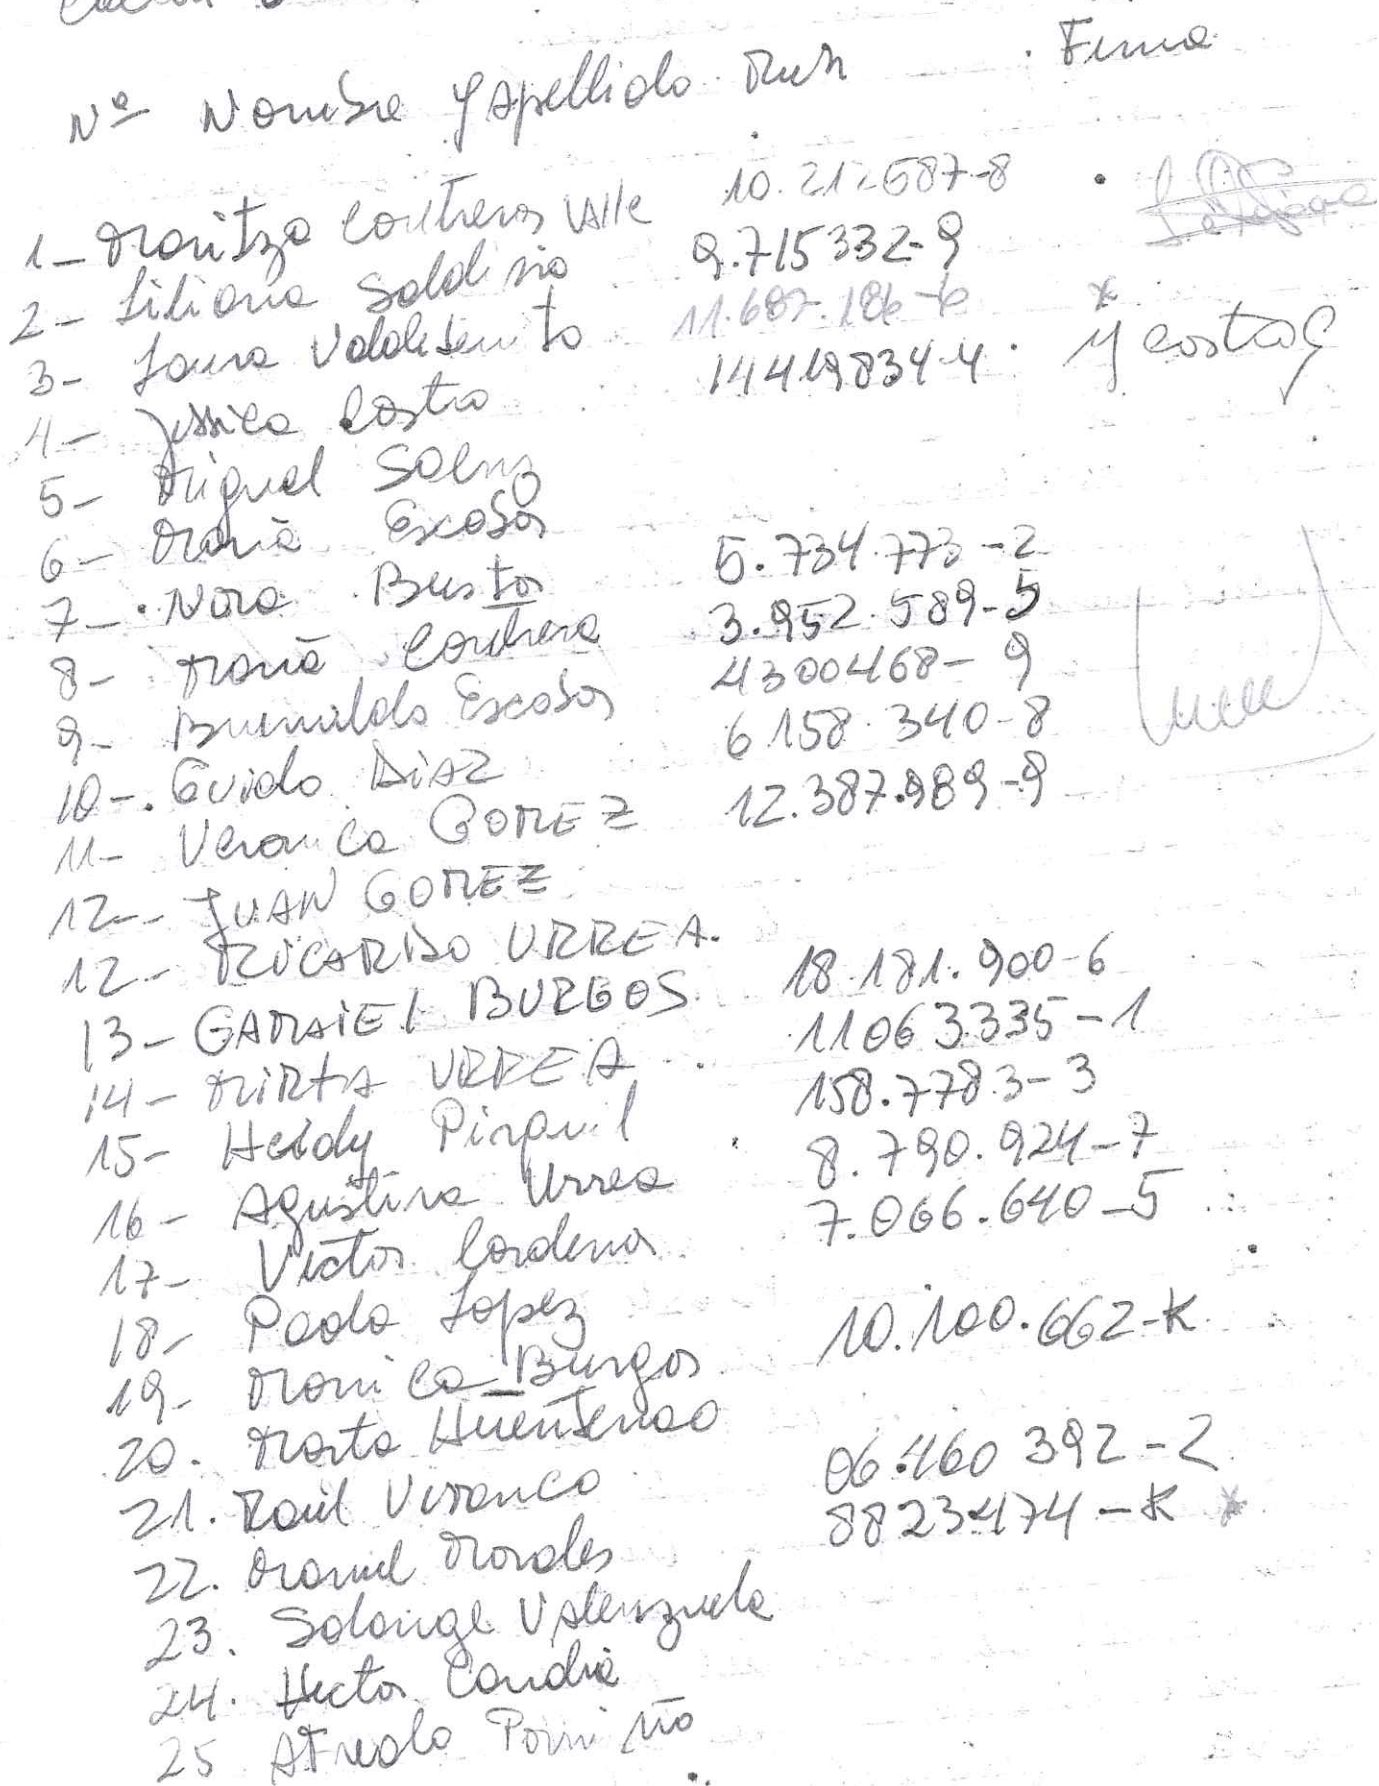 Nº Nombre y Apellido Rut Firma
1- Maritza Contreras Valle 10.212.587-8
2- Liliana Saldivia 9.715332-9
3- Laura Valdebenito 11.687.186-6
4- Jessica Castro 14419834-4 J Castro C
5- Miguel Saenz
6- Maria Escobar
7- Nora Bustos 5.734.773-2
8- Maria Contrera 3.952.589-5
9- Brunilda Escobar 4300468-9
10- Guido Diaz 6158.340-8
11- Veronica GOMEZ 12.387.989-9
12- JUAN GOMEZ
12- RICARDO URREA.
13- GABRIEL BURGOS 18.181.900-6
14- MIRTA URREA 11063.335-1
15- Heidy Pirquil 158.778.3-3
16- Agustina Urrea 8.790.924-7
17- Victor Cardenas 7.066.640-5
18- Paola Lopez
19- Monica Burgos 10.100.662-K
20. Marta Huentenao
21. Raul Viranco 06.460 392-2
22. Manuel Morales 8823474-K *
23. Solange Valenzuela
24. Hector Candia
25 Alfredo